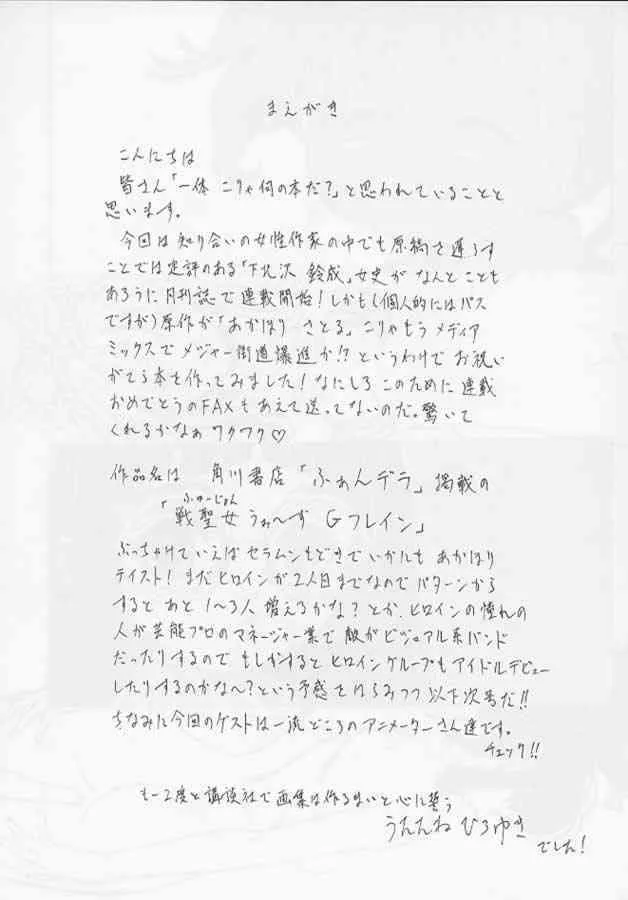 まえがき
こんにちは
皆さん「一体 こりゃ何の本だ?」と思われていることと
思います。
今回は知り合いの女性作家の中でも原稿を遅らす
ことでは定評のある「下北沢 鈴成」女史が なんと ことも
あろうに 月刊誌で 連載開始!しかも(個人的にはパス
ですが)原作が「あかほり さとる」こりゃもう メディア
ミックスで メジャー街道爆進か!?というわけで お祝い
がてら本を作ってみました!なにしろ このために 連載
おめでとうのFAXも あえて送ってないのだ。驚いて
くれるかなぁ ワクワク♡
作品名は 角川書店「ふぁんデラ」掲載の
ふゅーじょん
「戦聖女 うぉ〜ず Gフレイン」
ぶっちゃけていえば セラムンもどきで いかにも あかほり
テイスト! まだヒロインが2人目までなので パターンから
すると あと 1〜3人 増えるかな? とか、ヒロインの憧れの
人が芸能プロのマネージャー業で 敵がビジュアル系バンド
だったりするので もしかすると ヒロイングループも アイドルデビュー
したりするのかな〜?という予感をはらみつつ 以下次号だ!!
ちなみに今回のゲストは一流どころのアニメーターさん達です。
チェック!!
もー2度と 講談社で画集は作るまいと心に誓う
うたたね ひろゆき
でした!